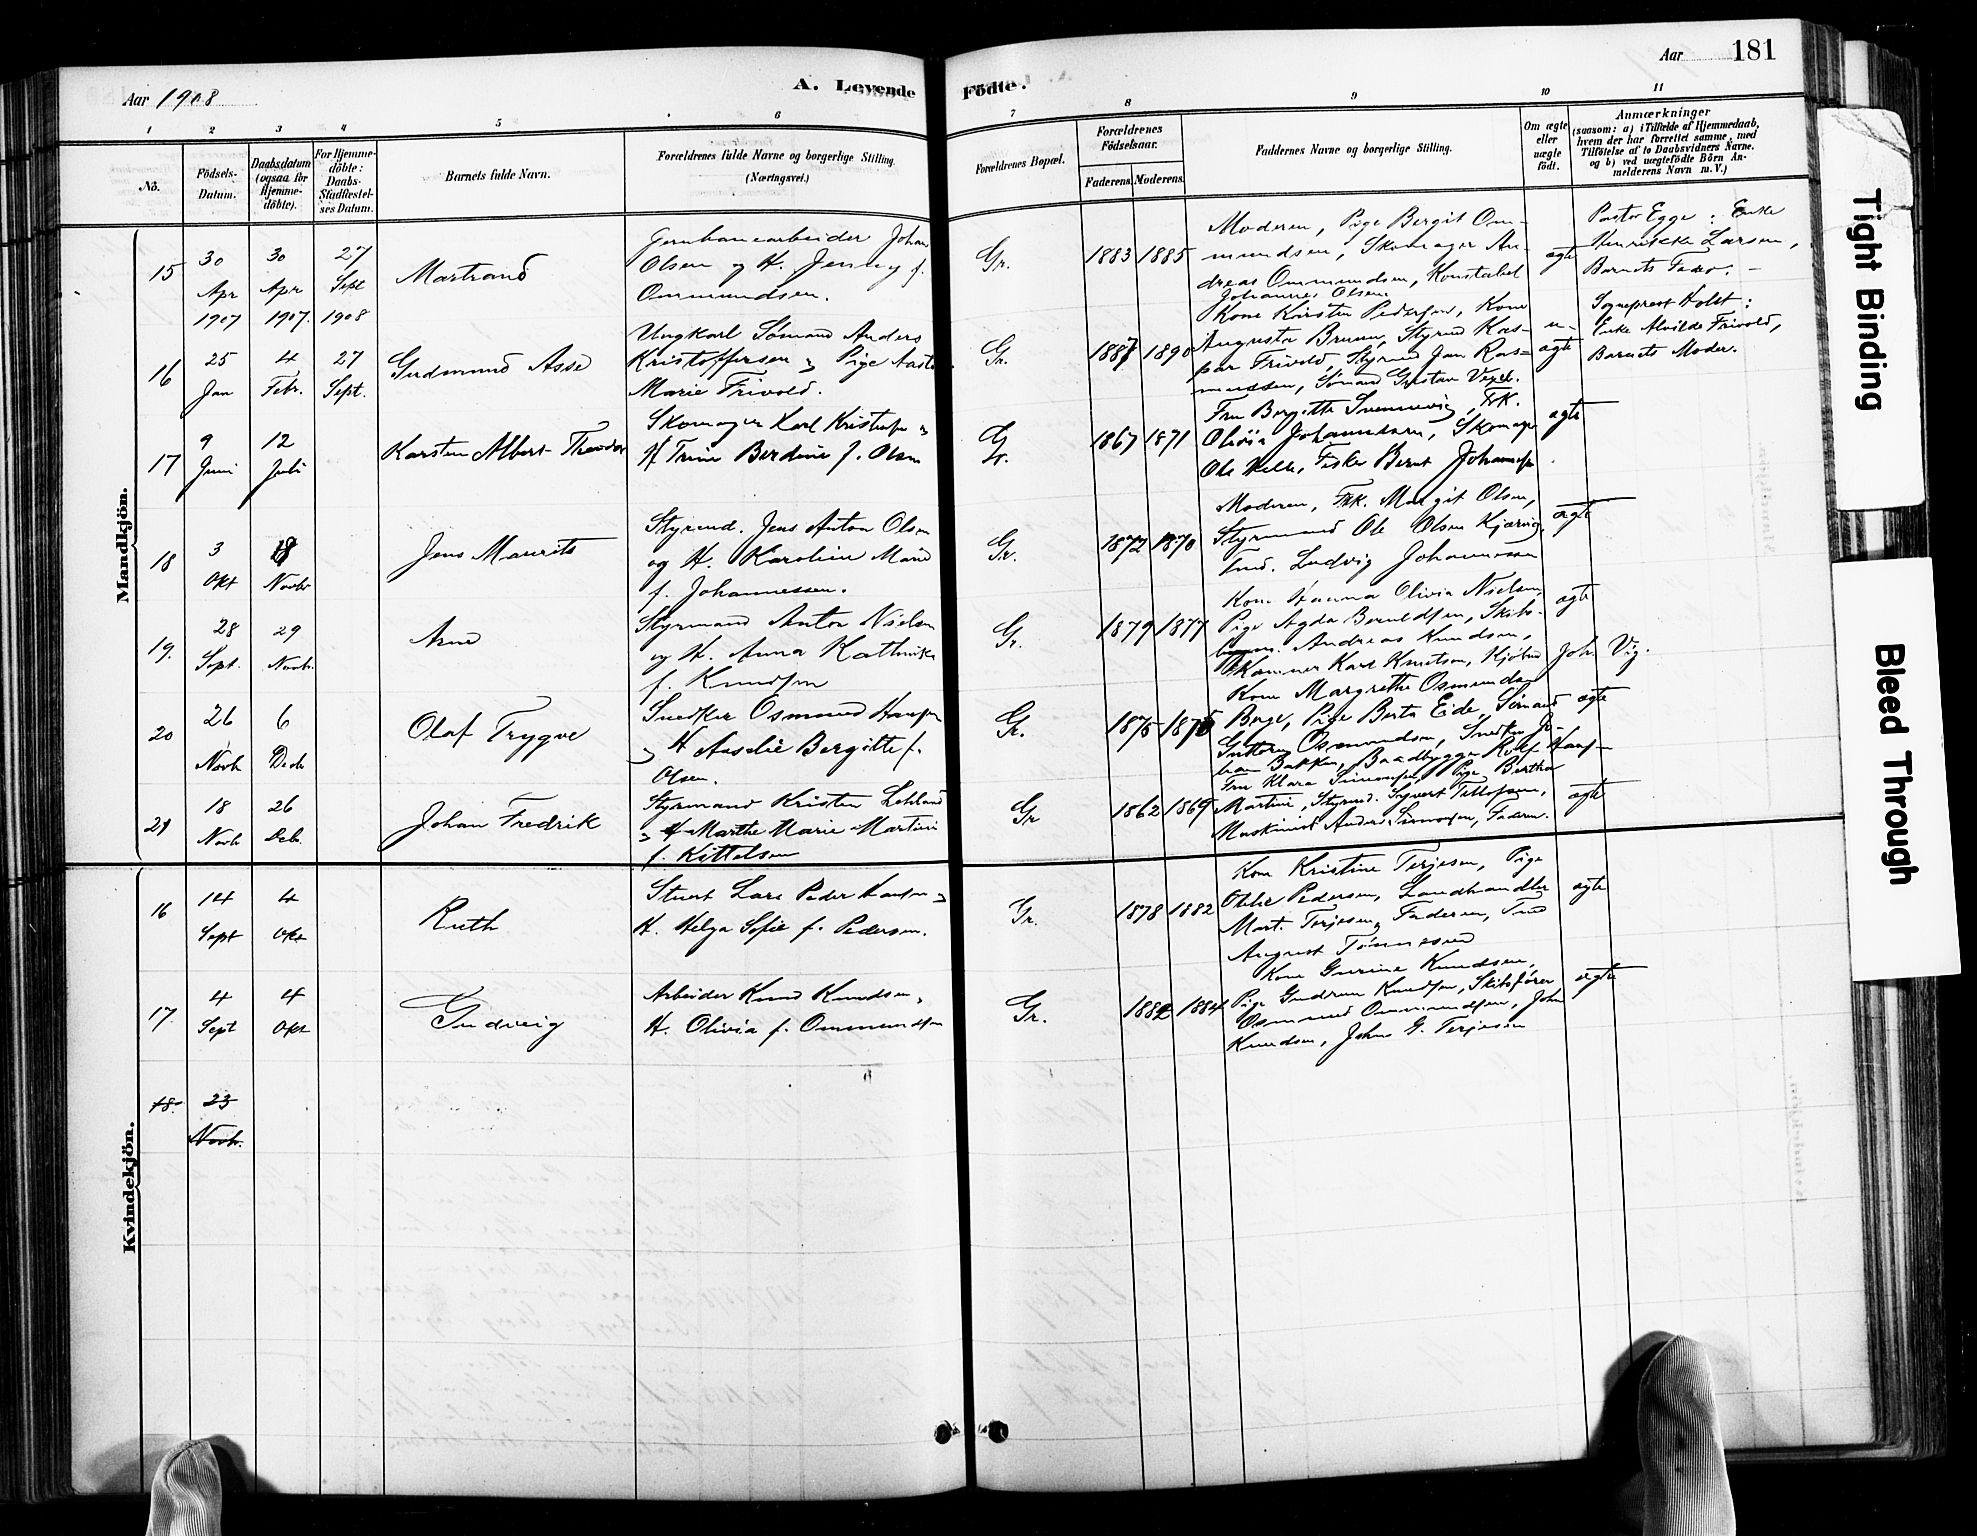 Aar 1908
A. Levende
Födte.
Aar
181
1
2
3
4
5
6
7
8
9
10
11
No.
Födsels-
Datum.
Daabsdatum
(ogsaa for
Hjemme-
döbte).
For Hjemme-
döbte:
Daabs-
Stadfæstel-
ses Datum.
Barnets fulde Navn.
Forældrenes fulde Navne og borgerlige Stilling.
(Næringsvei.)
Forældrenes Bopæl.
Forældrenes
Födselsaar.
Faderens.
Moderens.
Faddernes Navne og borgerlige Stilling.
Om ægte
eller
uægte
födt.
Anmærkninger
(saasom: a) i Tilfælde af Hjemmedaab,
hvem der har forrettet samme, med
Tilföielse af to Daabsvidners Navne.
og b) ved uægtefödte Börn An-
melderens Navn m. V.)
Mandkjön.
15
30
Apr
1907
30
Apr
1907.
27
Sept
1908
Martrand
Jernbanearbeider Johan
Olsen og H. Jenny f.
Ommundsen.
Gr.
1883
1885
Moderen, Pige Bergit Om-
mundsen, Skomager An-
dreas Ommundsen, Konstabel
Johannes Olsen
ægte
Pastor Egge: Enke
Larsen,
Barnets Fader. -
16
25
Jan
4
Febr.
27
Sept.
Gudmund Asse
Ungkarl Sømand Anders
Kristoffersen og Pige Aasta
Marie Frivold.
Gr.
1887
1890
Kone Kirsten Pedersen, Kone
Augusta Bruun, Styrmd Kas-
par Frivold, Styrmd Jan Ras-
mussen, Sømand Gustav
u-
ægte
Sogneprest Holst:
Enke Alvilde Frivold,
Barnets Moder.
17
9
Juni
12
Juli
Karsten Albert Theodor
Skomager Karl Kristensen og
H Trine Berdine f. Olsen
Gr.
1867
1871
Fru Bergitte Svennevig, FrK.
Olevia Johannesen, Skomager
Ole Fisker Bernt Johannesen
ægte
18
3
Okt
8
Novbr
Jens Maurits
Styrmd. Jens Anton Olsen
og H. Karoline Marie
f. Johannessen.
Gr.
1872
1870
Moderen, FrK. Margit Olsen,
Styrmand Ole Olsen Kjærvig,
Tmd. Ludvig Johannessen
ægte
19.
28
Sept.
29
Novbr.
Arne
Styrmand Anton Nielsen
og H. Anna Kathrike
f. Knudsen
Gr.
1879
1877
Kone Hanna Olivia Nielsen,
Pige Agda Berntsen, Skibs-
Andreas Knudsen,
Karl Knutsen, Kjøbmd Joh. Vig.
ægte
20
26
Novbr
6
Decbr
Olaf Trygve
Snedker Osmund Hansen
og H Aaselie Bergitte f.
Olsen.
Gr.
1875
1875
Kone Margrethe Osmunds.
Borge, Pige Berta Eide, Sømand
Guttorm Osmundsen, Snedker Jo-
han Bakken, Baadbygger Rolf Hans-
ægte
21
18
Novbr
26
Decbr.
Johan Fredrik
Styrmand Kristen Lehland
og H Marthe Marie Martine
f. Kittelsen
Gr
1862
1869
Fru Klara Simonsen, Pige Bertha
Martine, Styrmd. Syvert Tellefsen,
Maskinist Anders Simonsen, Faderen.
ægte
Kvindekjön.
16
14
Sept
4
Okt
Ruth
Stuert Lars Peder Hansen og
H. Helga Sofie f. Pedersen.
Gr.
1878
1882
Kone Kristine Terjesen, Pige
Othie Pedersen, Landhandler
Mart. Terjesen, Faderen, Tmd
August Tönnesen
ægte
17.
4
Sept
4
Okt
Gudveig
Arbeider Knud Knudsen,
H. Olivia f. Ommundsen
Gr.
1882
1884
Kone Gurine Knudsen,
Pige Gudrun Knudsen, Skibsfører
Osmund Ommundsen, John
Knudsen, John G. Terjesen
ægte
18.
23
Novbr.
Tight Binding
Bleed Through